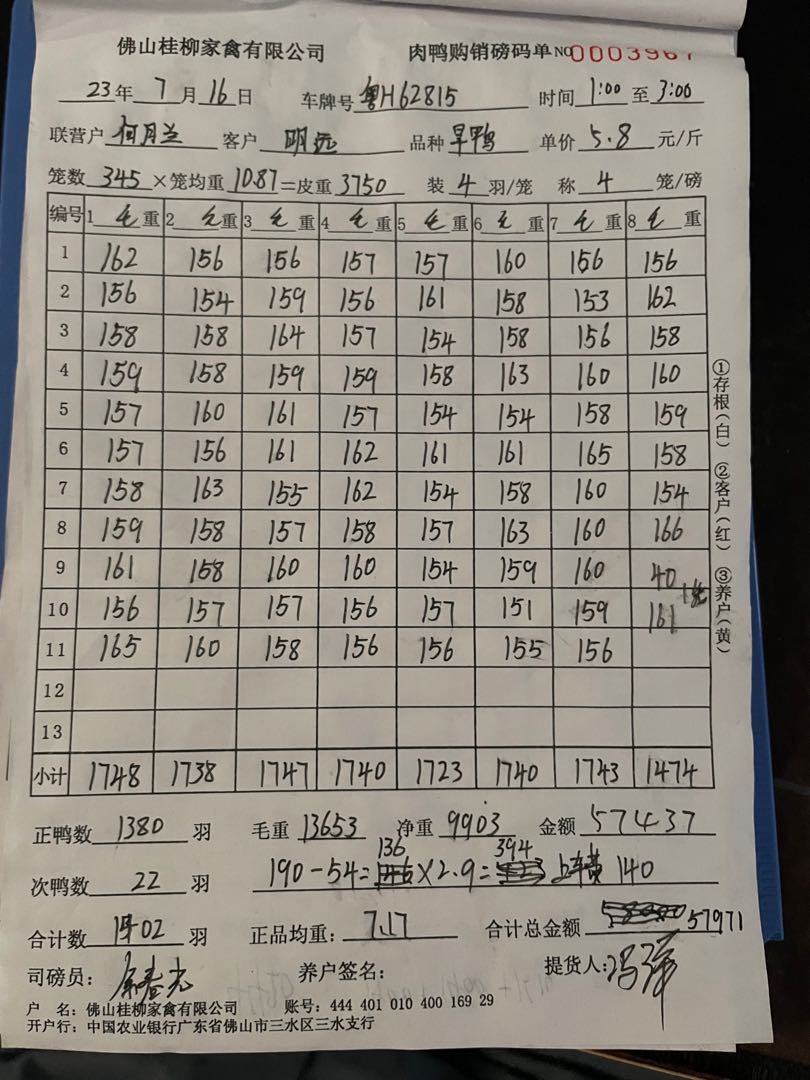 佛山桂柳家禽有限公司 肉鸭购销磅码单 NO 0003967
23年 7月16日 车牌号 粤H62815 时间 1:00 至 3:00
联营户 何月兰 客户 明远 品种 旱鸭 单价 5.8 元/斤
笼数 345 ×笼均重 10.87 =皮重 3750 装 4 羽/笼 称 4 笼/磅
编号 1 毛 重 2 毛 重 3 毛 重 4 毛 重 5 毛 重 6 毛 重 7 毛 重 8 毛 重
1 162 156 156 157 157 160 156 156
2 156 154 159 156 161 158 153 162
3 158 158 164 157 154 158 156 158
4 159 158 159 159 158 163 160 160
5 157 160 161 157 154 154 158 159
6 157 156 161 162 161 161 165 158
7 158 163 155 162 154 158 160 154
8 159 158 157 158 157 163 160 166
9 161 158 160 160 154 159 160 40
10 156 157 157 156 157 151 159 161
11 165 160 158 156 156 155 156
12
13
小计 1748 1738 1747 1740 1723 1740 1743 1474
正鸭数 1380 羽 毛重 13653 净重 9903 金额 57437
次鸭数 22 羽 190-54= 136 ×2.9= 394 上车 140
合计数 1402 羽 正品均重: 7.17 合计总金额 57971
司磅员: 养户签名: 提货人: 冯
户 名: 佛山桂柳家禽有限公司 账号: 444 401 010 400 169 29
开户行: 中国农业银行广东省佛山市三水区三水支行
①存根(白) ②客户(红) ③养户(黄)